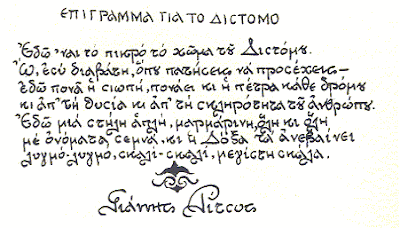 ΕΠΙΓΡΑΜΜΑ ΓΙΑ ΤΟ ΔΙΣΤΟΜΟ
Ἐδῶ 'ναι τὸ πικρὸ τὸ χῶμα τοῦ Διστόμου.
Ὦ, ἐσὺ διαβάτη, ὅπου πατήσεις νὰ προσέχεις–
ἐδῶ πονᾶ ἡ σιωπή, πονάει κι ἡ πέτρα κάθε δρόμου
κι ἀπ' τὴ θυσία κι ἀπ' τὴ σκληρότητα τοῦ ἀνθρώπου.
Ἐδῶ μιὰ στήλη ἁπλή, μαρμάρινη, ὅλη κι ὅλη
μὲ ὀνόματα σεμνά, κι ἡ Δόξα τὰ ἀνεβαίνει
λυγμὸ-λυγμό, σκαλὶ-σκαλί, μεγίστη σκάλα.
Γιάννης Ρίτσος